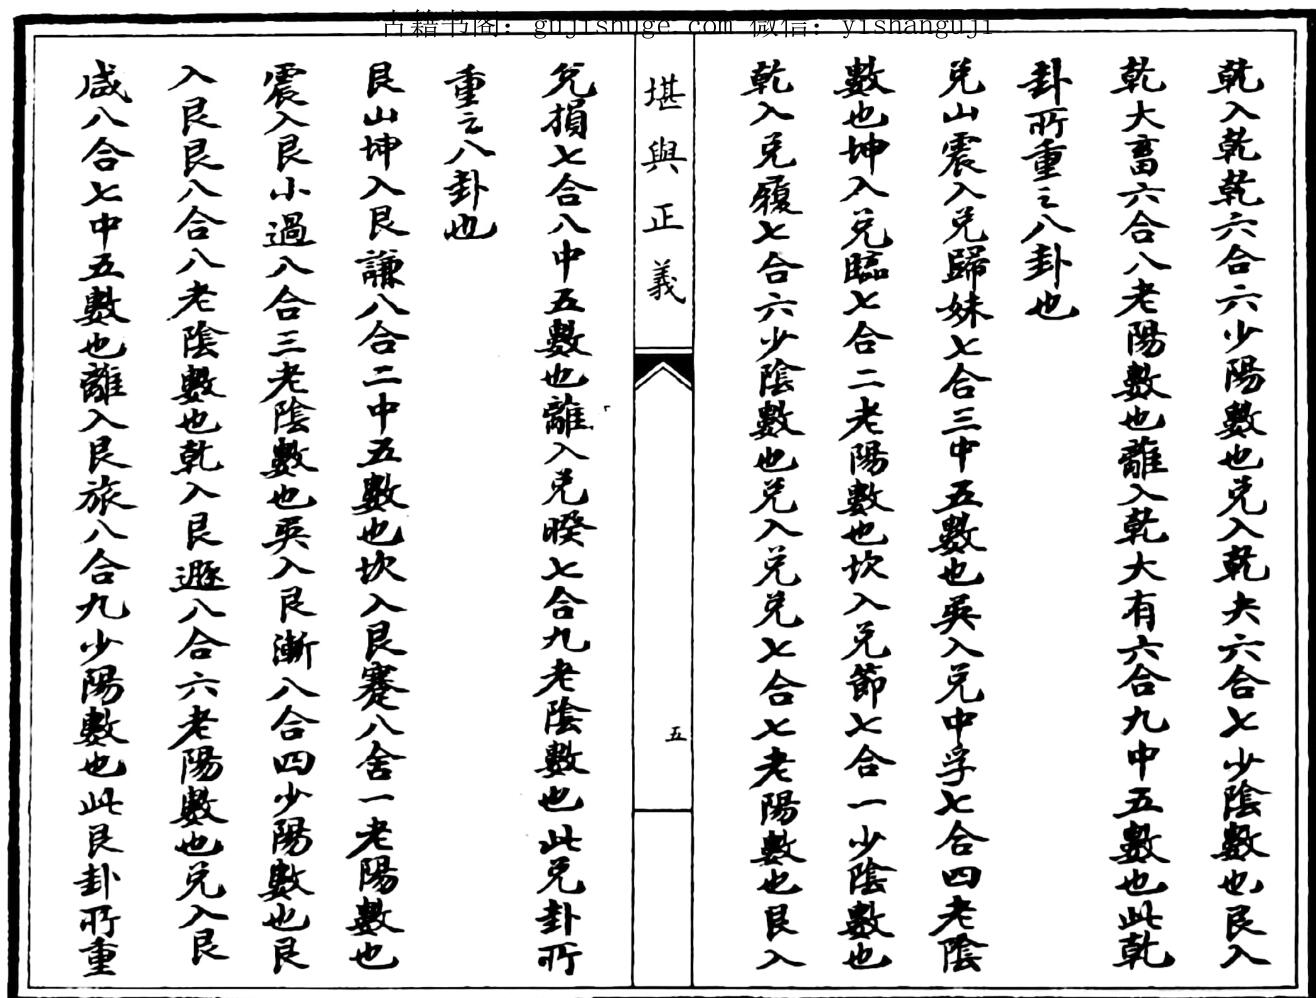 古籍书阁：gujishuge.com 微信：yishanguji
乾入乾乾六合六少陽數也兑入乾夬六合七少陰數也艮入
乾大畜六合八老陽數也離入乾大有六合九中五數也此乾
卦所重之八卦也
兑山震入兑歸妹七合三中五數也巽入兑中孚七合四老陰
數也坤入兑臨七合二老陽數也坎入兑節七合一少陰數也
乾入兑履七合六少陰數也兑入兑兑七合七老陽數也艮入
堪輿正義
五
兑損七合八中五數也離入兑暌七合九老陰數也此兑卦所
重之八卦也
艮山坤入艮謙八合二中五數也坎入艮蹇八舍一老陽數也
震入艮小過八合三老陰數也巽入艮漸八合四少陽數也艮
入艮艮八合八老陰數也乾入艮遯八合六老陽數也兑入艮
咸八合七中五數也離入艮旅八合九少陽數也此艮卦所重